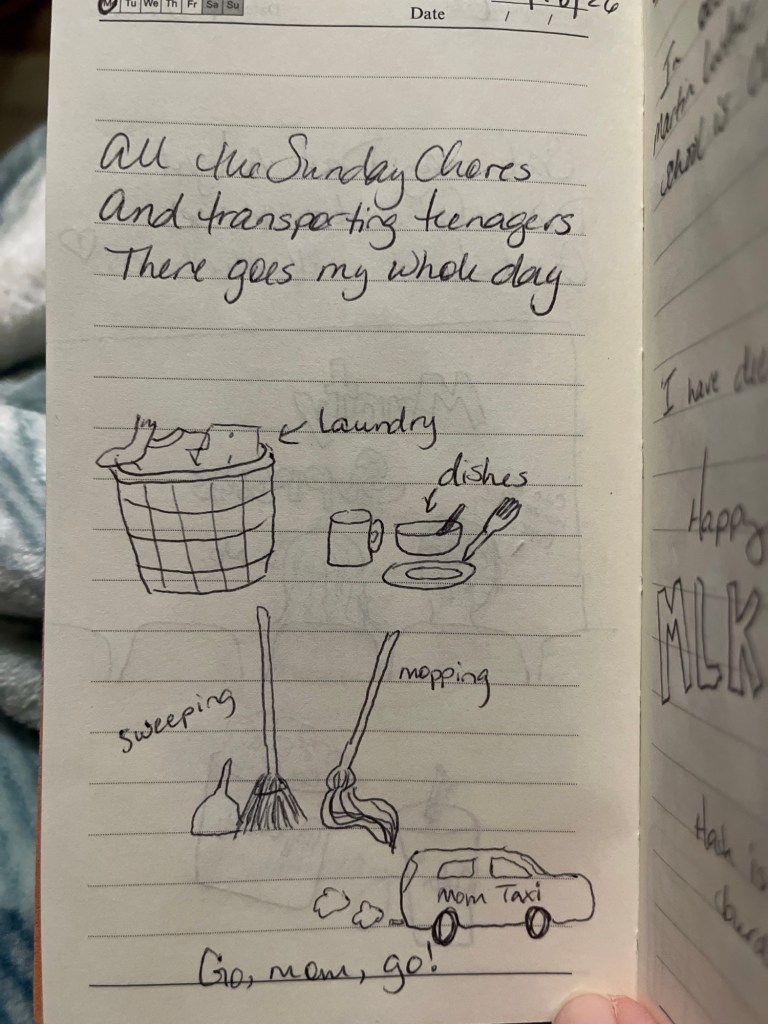 M Tu We Th Fr Sa Su
Date
All the Sunday Chores
And transporting teenagers
There goes my whole day
laundry
dishes
sweeping
mopping
Mom Taxi
Go, mom, go!
In
Martin
school is
I have
Happy
MLK
is